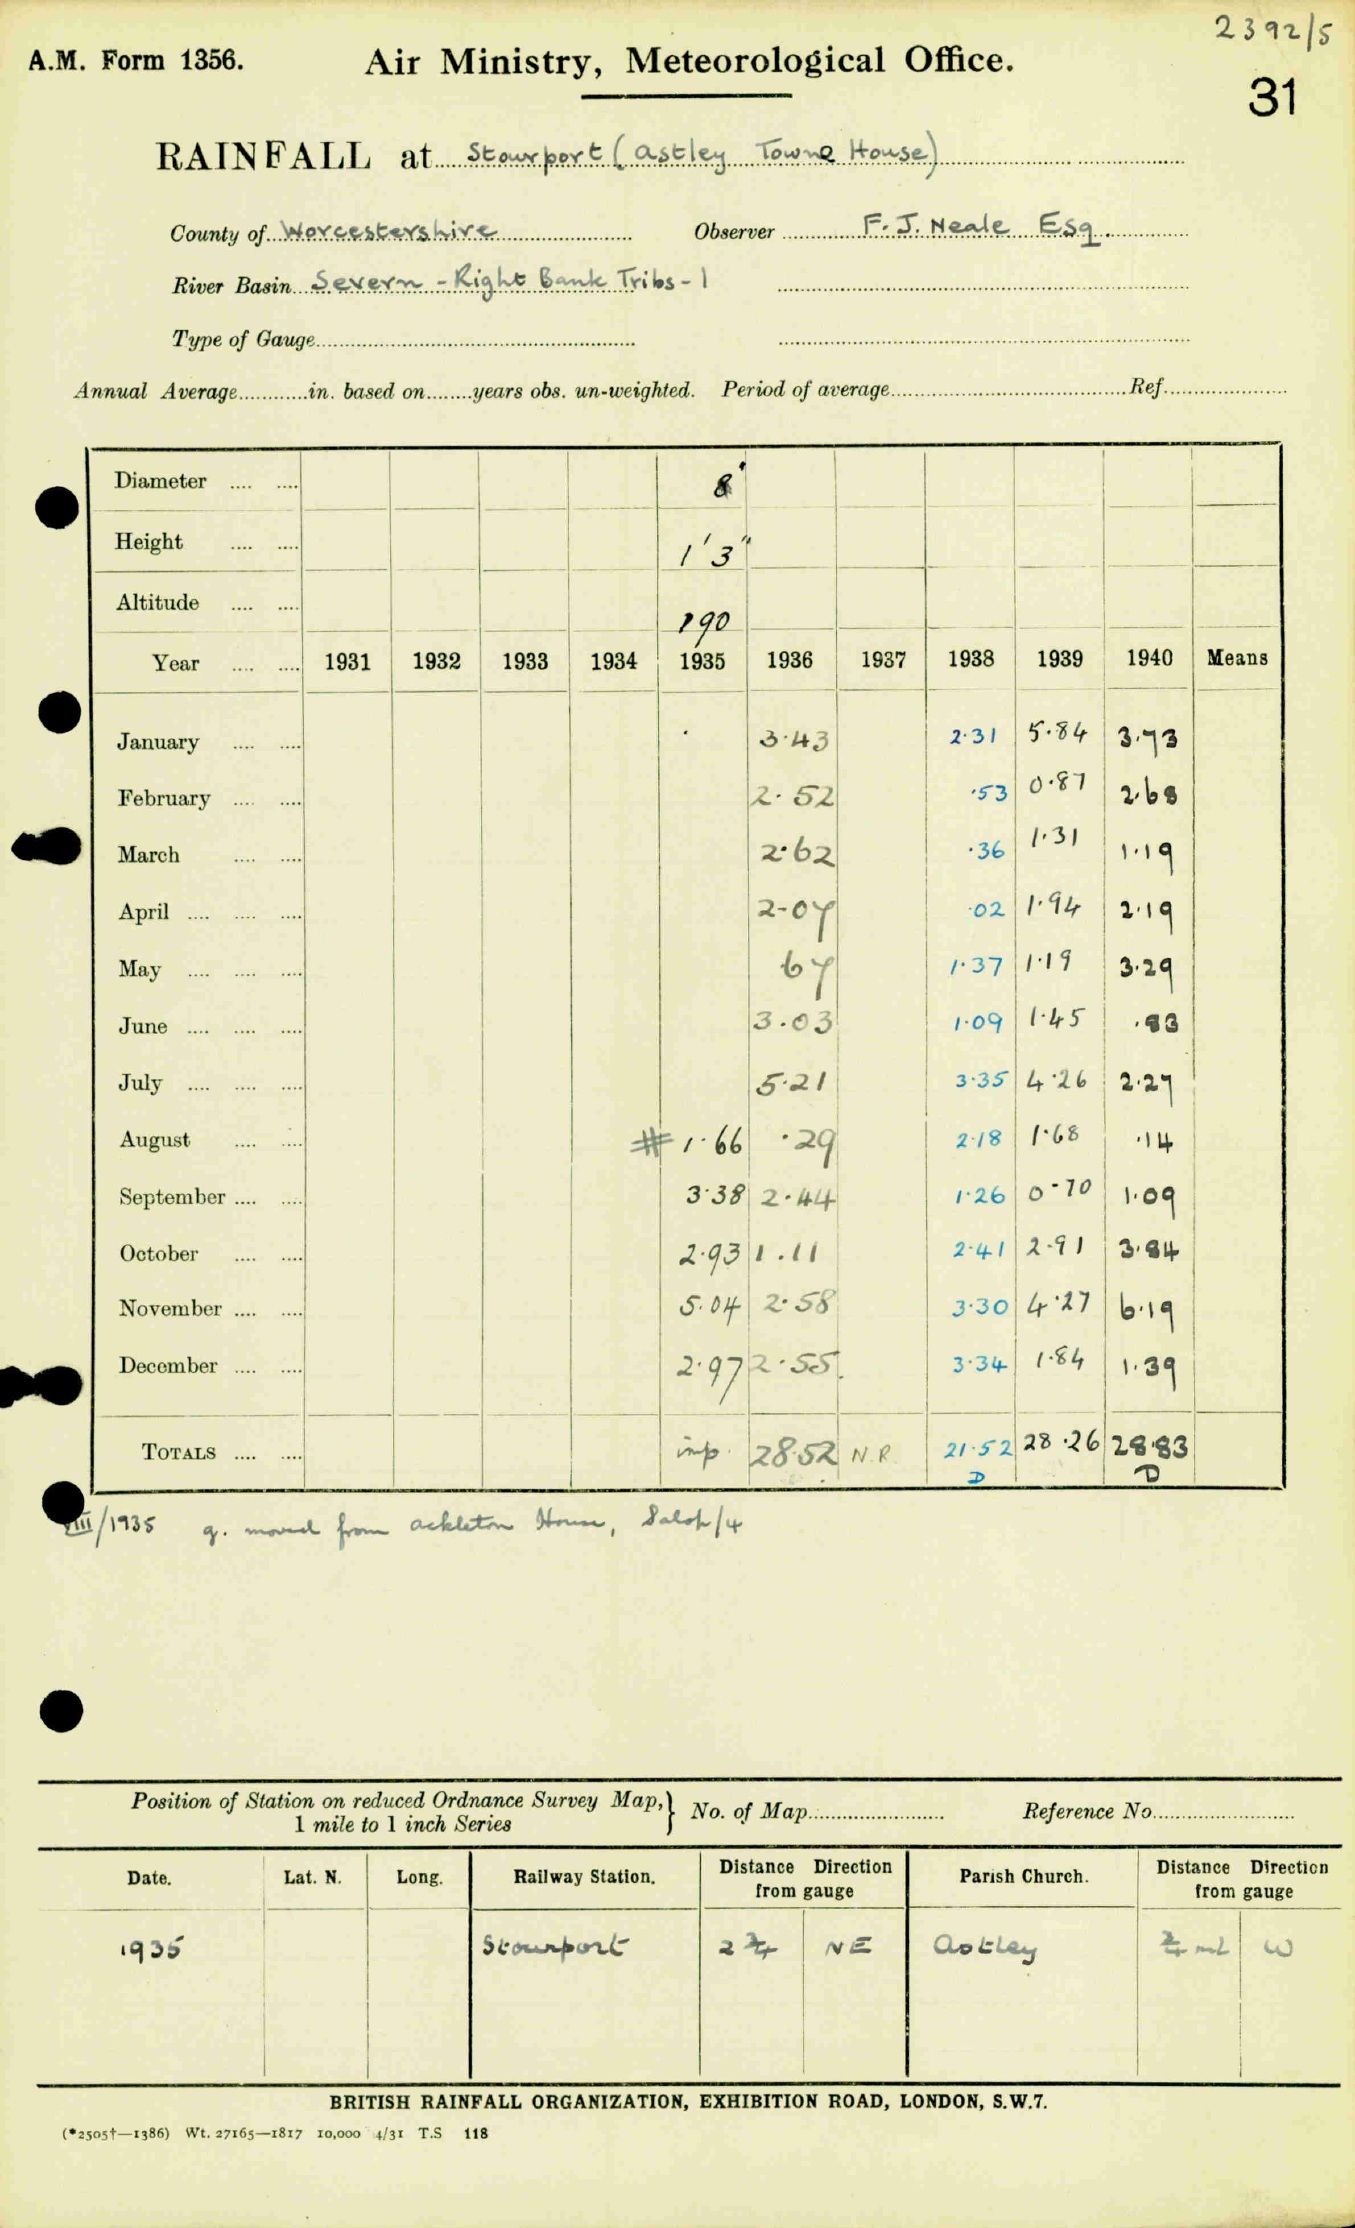 2392/5
A.M. Form 1356. Air Ministry, Meteorological Office.
31
RAINFALL at Stourport (Astley Towne House)
County of Worcestershire Observer F. J. Neale Esq.
River Basin Severn - Right Bank Tribs - 1
Type of Gauge
Annual Average in. based on years obs. un-weighted. Period of average Ref.
Diameter 8"
Height 1' 3"
Altitude 190
Year 1931 1932 1933 1934 1935 1936 1937 1938 1939 1940 Means
January 3.43 2.31 5.84 3.73
February 2.52 .53 0.87 2.68
March 2.62 .36 1.31 1.19
April 2.07 .02 1.94 2.19
May 67 1.37 1.19 3.29
June 3.03 1.09 1.45 .83
July 5.21 3.35 4.26 2.27
August # 1.66 .29 2.18 1.68 .14
September 3.38 2.44 1.26 0.70 1.09
October 2.93 1.11 2.41 2.91 3.84
November 5.04 2.58 3.30 4.27 6.19
December 2.97 2.55. 3.34 1.84 1.39
TOTALS imp. 28.52 N.R 21.52 28.26 28.83
D D
VIII/1935 g. moved from Ackleton House, Salop/4
Position of Station on reduced Ordnance Survey Map, 1 mile to 1 inch Series } No. of Map Reference No.
Date. Lat. N. Long. Railway Station. Distance Direction from gauge Parish Church. Distance Direction from gauge
1935 Stourport 2 3/4 NE Astley 3/4 ml W
BRITISH RAINFALL ORGANIZATION, EXHIBITION ROAD, LONDON, S.W.7.
(*2505†—1386) Wt. 27165—1817 10,000 4/31 T.S 118